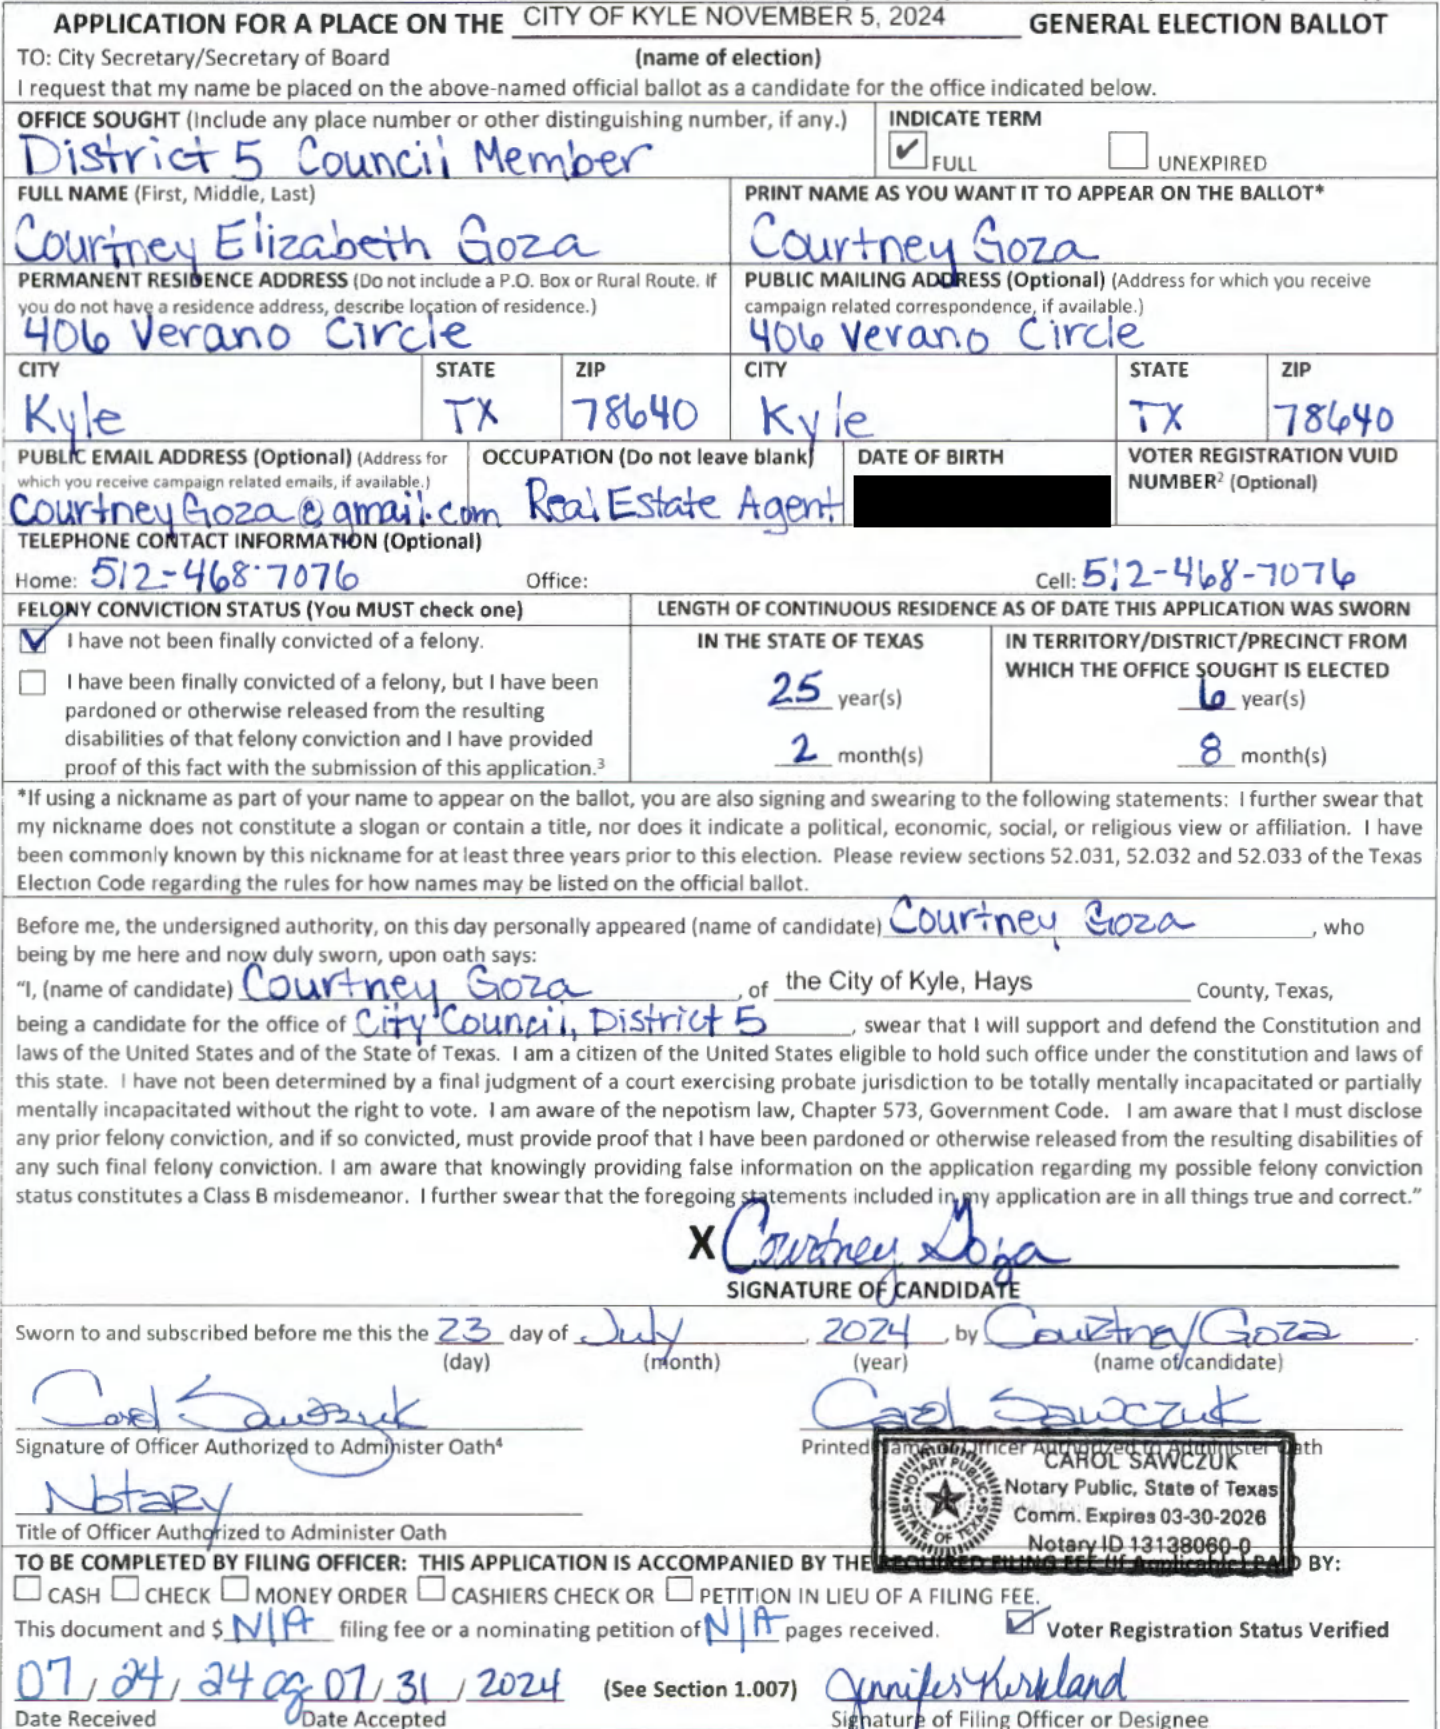 APPLICATION FOR A PLACE ON THE CITY OF KYLE NOVEMBER 5, 2024 GENERAL ELECTION BALLOT
TO: City Secretary/Secretary of Board (name of election)
I request that my name be placed on the above-named official ballot as a candidate for the office indicated below.
OFFICE SOUGHT (Include any place number or other distinguishing number, if any.) INDICATE TERM
District 5 Council Member ✓ FULL UNEXPIRED
FULL NAME (First, Middle, Last) PRINT NAME AS YOU WANT IT TO APPEAR ON THE BALLOT*
Courtney Elizabeth Goza Courtney Goza
PERMANENT RESIDENCE ADDRESS (Do not include a P.O. Box or Rural Route. If PUBLIC MAILING ADDRESS (Optional) (Address for which you receive
you do not have a residence address, describe location of residence.) campaign related correspondence, if available.)
406 Verano Circle 406 Verano Circle
CITY STATE ZIP CITY STATE ZIP
Kyle TX 78640 Kyle TX 78640
PUBLIC EMAIL ADDRESS (Optional) (Address for OCCUPATION (Do not leave blank) DATE OF BIRTH VOTER REGISTRATION VUID
which you receive campaign related emails, if available.) NUMBER² (Optional)
CourtneyGoza@gmail.com Real Estate Agent
TELEPHONE CONTACT INFORMATION (Optional)
Home: 512-468-7076 Office: Cell: 512-468-7076
FELONY CONVICTION STATUS (You MUST check one) LENGTH OF CONTINUOUS RESIDENCE AS OF DATE THIS APPLICATION WAS SWORN
✓ I have not been finally convicted of a felony. IN THE STATE OF TEXAS IN TERRITORY/DISTRICT/PRECINCT FROM
WHICH THE OFFICE SOUGHT IS ELECTED
I have been finally convicted of a felony, but I have been 25 year(s) 6 year(s)
pardoned or otherwise released from the resulting
disabilities of that felony conviction and I have provided 2 month(s) 8 month(s)
proof of this fact with the submission of this application.³
*If using a nickname as part of your name to appear on the ballot, you are also signing and swearing to the following statements: I further swear that
my nickname does not constitute a slogan or contain a title, nor does it indicate a political, economic, social, or religious view or affiliation. I have
been commonly known by this nickname for at least three years prior to this election. Please review sections 52.031, 52.032 and 52.033 of the Texas
Election Code regarding the rules for how names may be listed on the official ballot.
Before me, the undersigned authority, on this day personally appeared (name of candidate) Courtney Goza, who
being by me here and now duly sworn, upon oath says:
"I, (name of candidate) Courtney Goza, of the City of Kyle, Hays County, Texas,
being a candidate for the office of City Council, District 5, swear that I will support and defend the Constitution and
laws of the United States and of the State of Texas. I am a citizen of the United States eligible to hold such office under the constitution and laws of
this state. I have not been determined by a final judgment of a court exercising probate jurisdiction to be totally mentally incapacitated or partially
mentally incapacitated without the right to vote. I am aware of the nepotism law, Chapter 573, Government Code. I am aware that I must disclose
any prior felony conviction, and if so convicted, must provide proof that I have been pardoned or otherwise released from the resulting disabilities of
any such final felony conviction. I am aware that knowingly providing false information on the application regarding my possible felony conviction
status constitutes a Class B misdemeanor. I further swear that the foregoing statements included in my application are in all things true and correct."
X Courtney Goza
SIGNATURE OF CANDIDATE
Sworn to and subscribed before me this the 23 day of July, 2024, by Courtney Goza.
(day) (month) (year) (name of candidate)
Carol Sawczuk Carol Sawczuk
Signature of Officer Authorized to Administer Oath⁴ Printed Name of Officer Authorized to Administer Oath
Notary
Title of Officer Authorized to Administer Oath
NOTARY PUBLIC STATE OF TEXAS
CAROL SAWCZUK
Notary Public, State of Texas
Comm. Expires 03-30-2026
Notary ID 13138060-0
TO BE COMPLETED BY FILING OFFICER: THIS APPLICATION IS ACCOMPANIED BY THE REQUIRED FILING FEE (If Applicable) PAID BY:
CASH CHECK MONEY ORDER CASHIERS CHECK OR PETITION IN LIEU OF A FILING FEE.
This document and $ N/A filing fee or a nominating petition of N/A pages received. ✓ Voter Registration Status Verified
07/24/24 cg 07/31/2024 (See Section 1.007) Jennifer Kirkland
Date Received Date Accepted Signature of Filing Officer or Designee